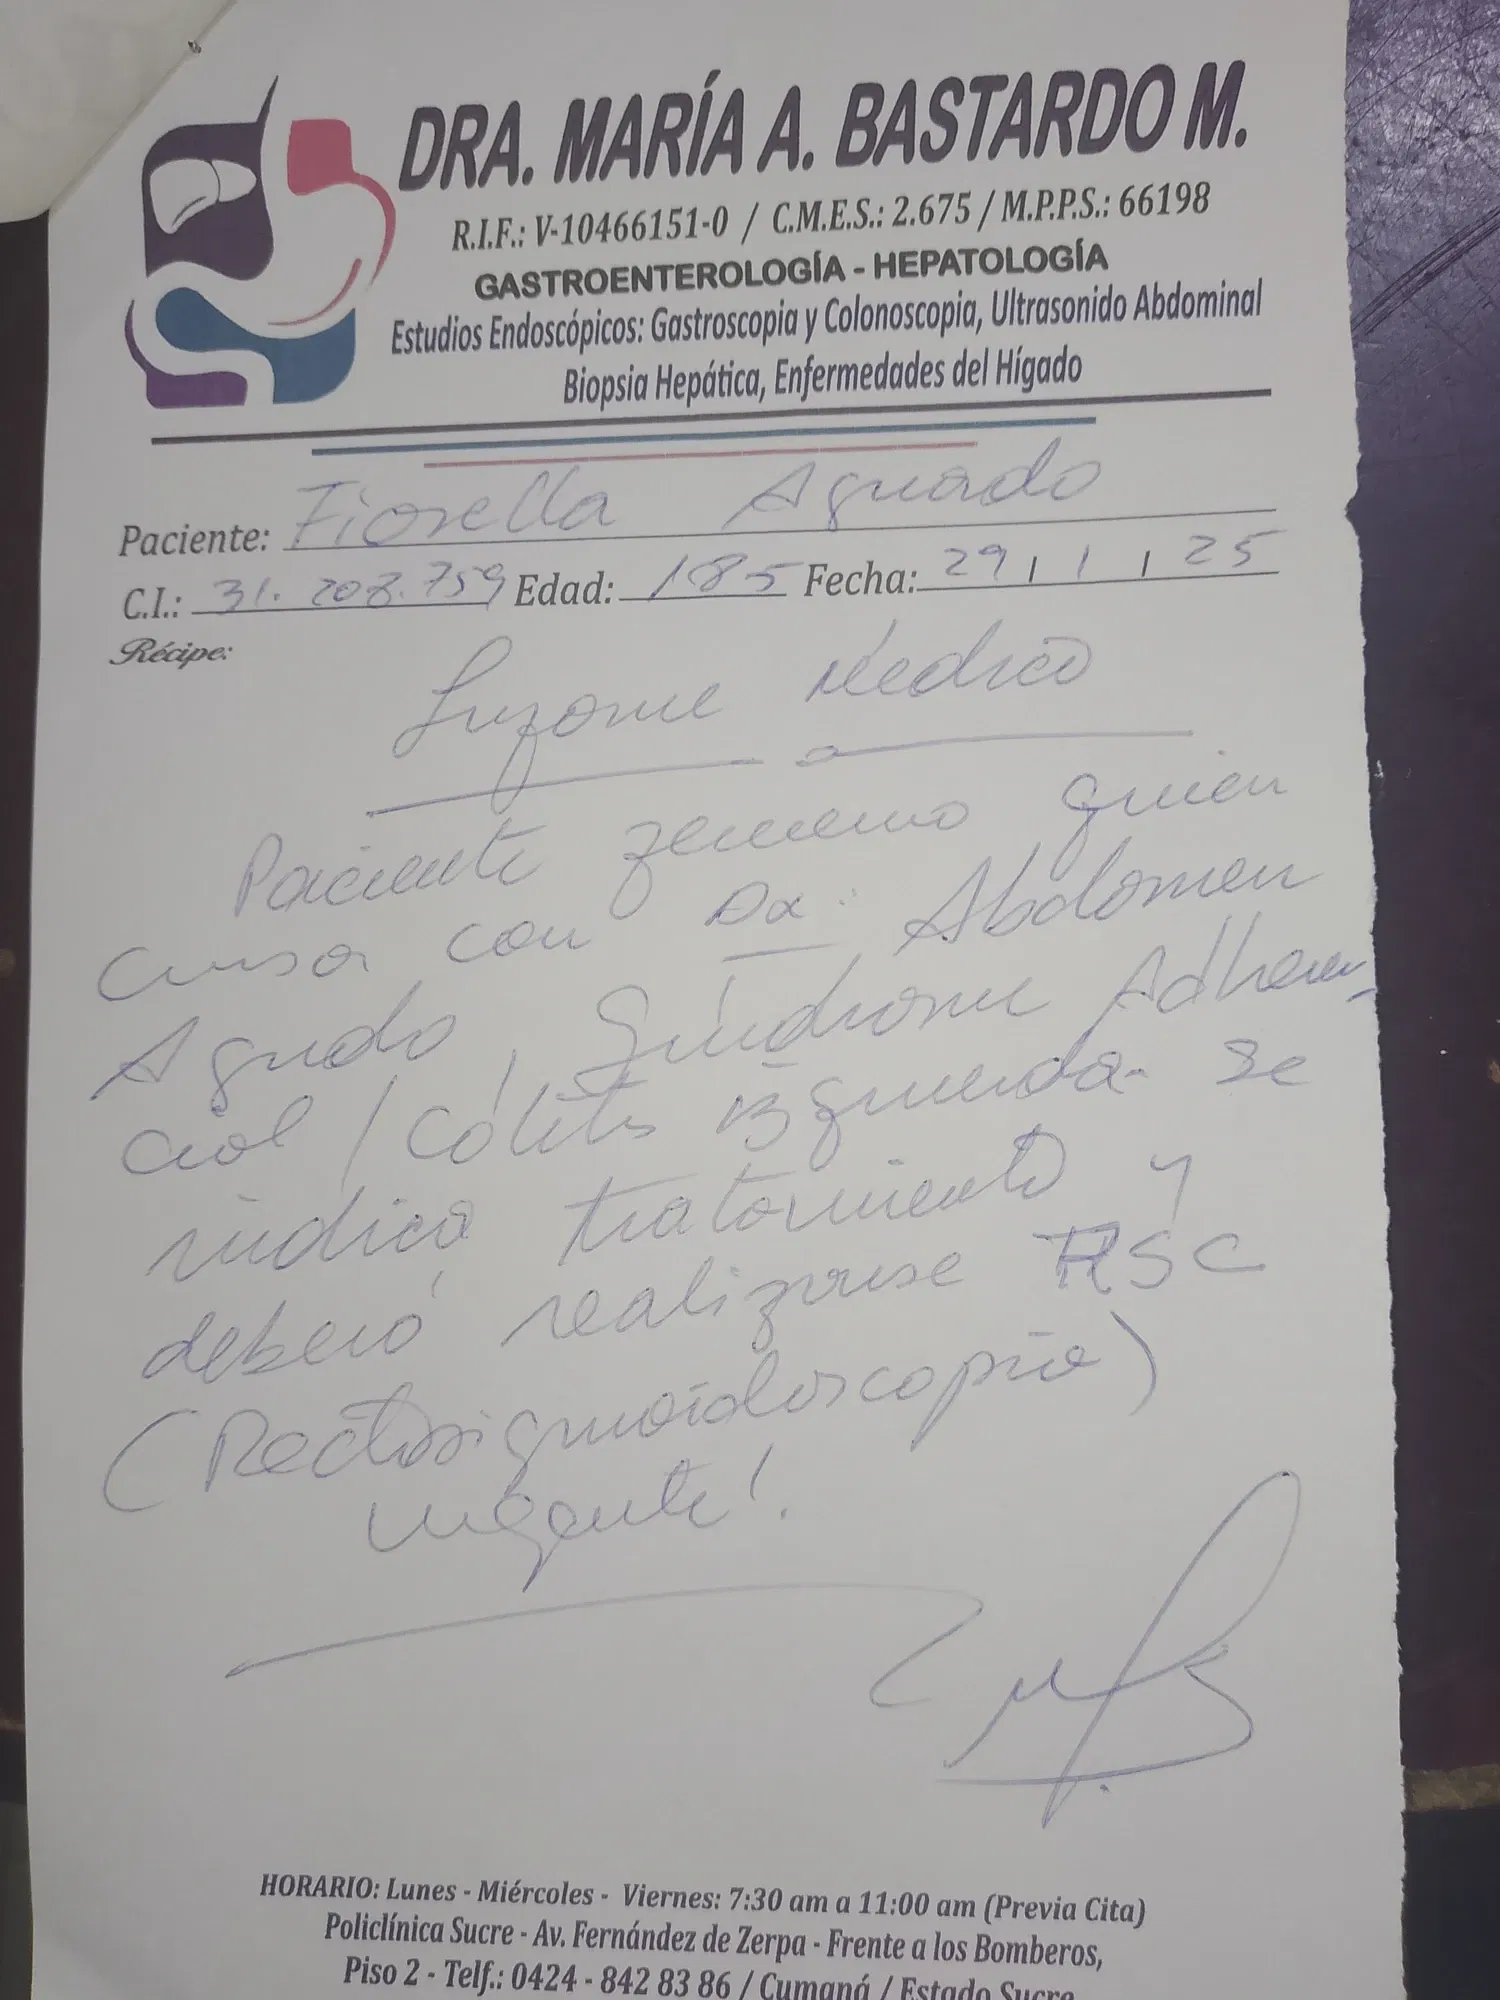 DRA. MARÍA A. BASTARDO M.
R.I.F.: V-10466151-0 / C.M.E.S.: 2.675 / M.P.P.S.: 66198
GASTROENTEROLOGÍA - HEPATOLOGÍA
Estudios Endoscópicos: Gastroscopia y Colonoscopia, Ultrasonido Abdominal
Biopsia Hepática, Enfermedades del Hígado
Paciente: Fiorella Aguado
C.I.: 31.208.759 Edad: 18 Fecha: 29/1/25
Récipe:
Informe Médico
Paciente femenino quien
cursa con Dx: Abdomen
Agudo, Síndrome Adheren-
cial / Cólitis izquierda. Se
indica tratamiento y
deberá realizarse RSC
(Rectosigmoidoscopia)
urgente!.
HORARIO: Lunes - Miércoles - Viernes: 7:30 am a 11:00 am (Previa Cita)
Policlínica Sucre - Av. Fernández de Zerpa - Frente a los Bomberos,
Piso 2 - Telf.: 0424 - 842 83 86 / Cumaná / Estado Sucre